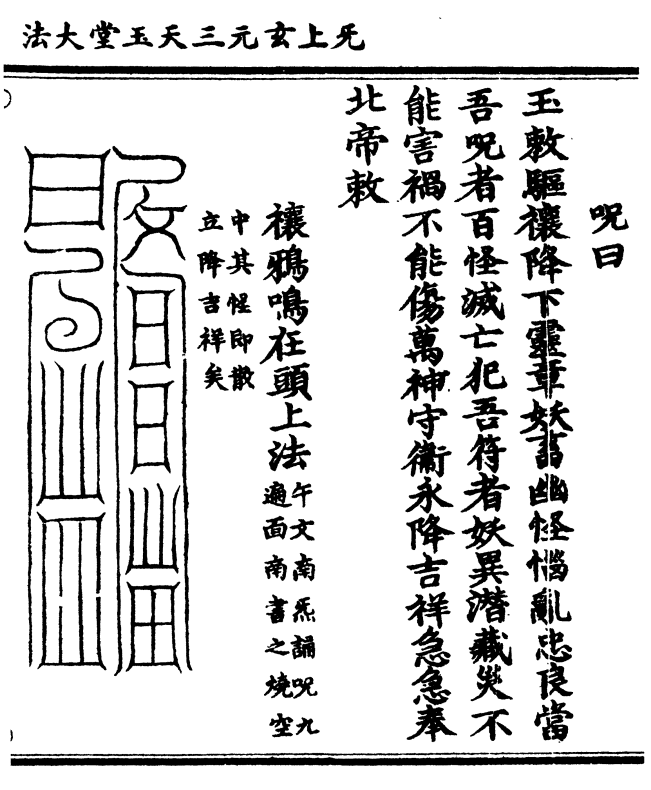 无上玄元三天玉堂大法
呪曰
玉敕驅禳降下靈章妖畜幽怪惱亂忠良當
吾呪者百怪滅亡犯吾符者妖異潛藏災不
能害禍不能傷萬神守衛永降吉祥急急奉
北帝敕
禳鴉鳴在頭上法
午文南炁誦呪九
遍面南書之燒空
中其怪即散
立降吉祥矣